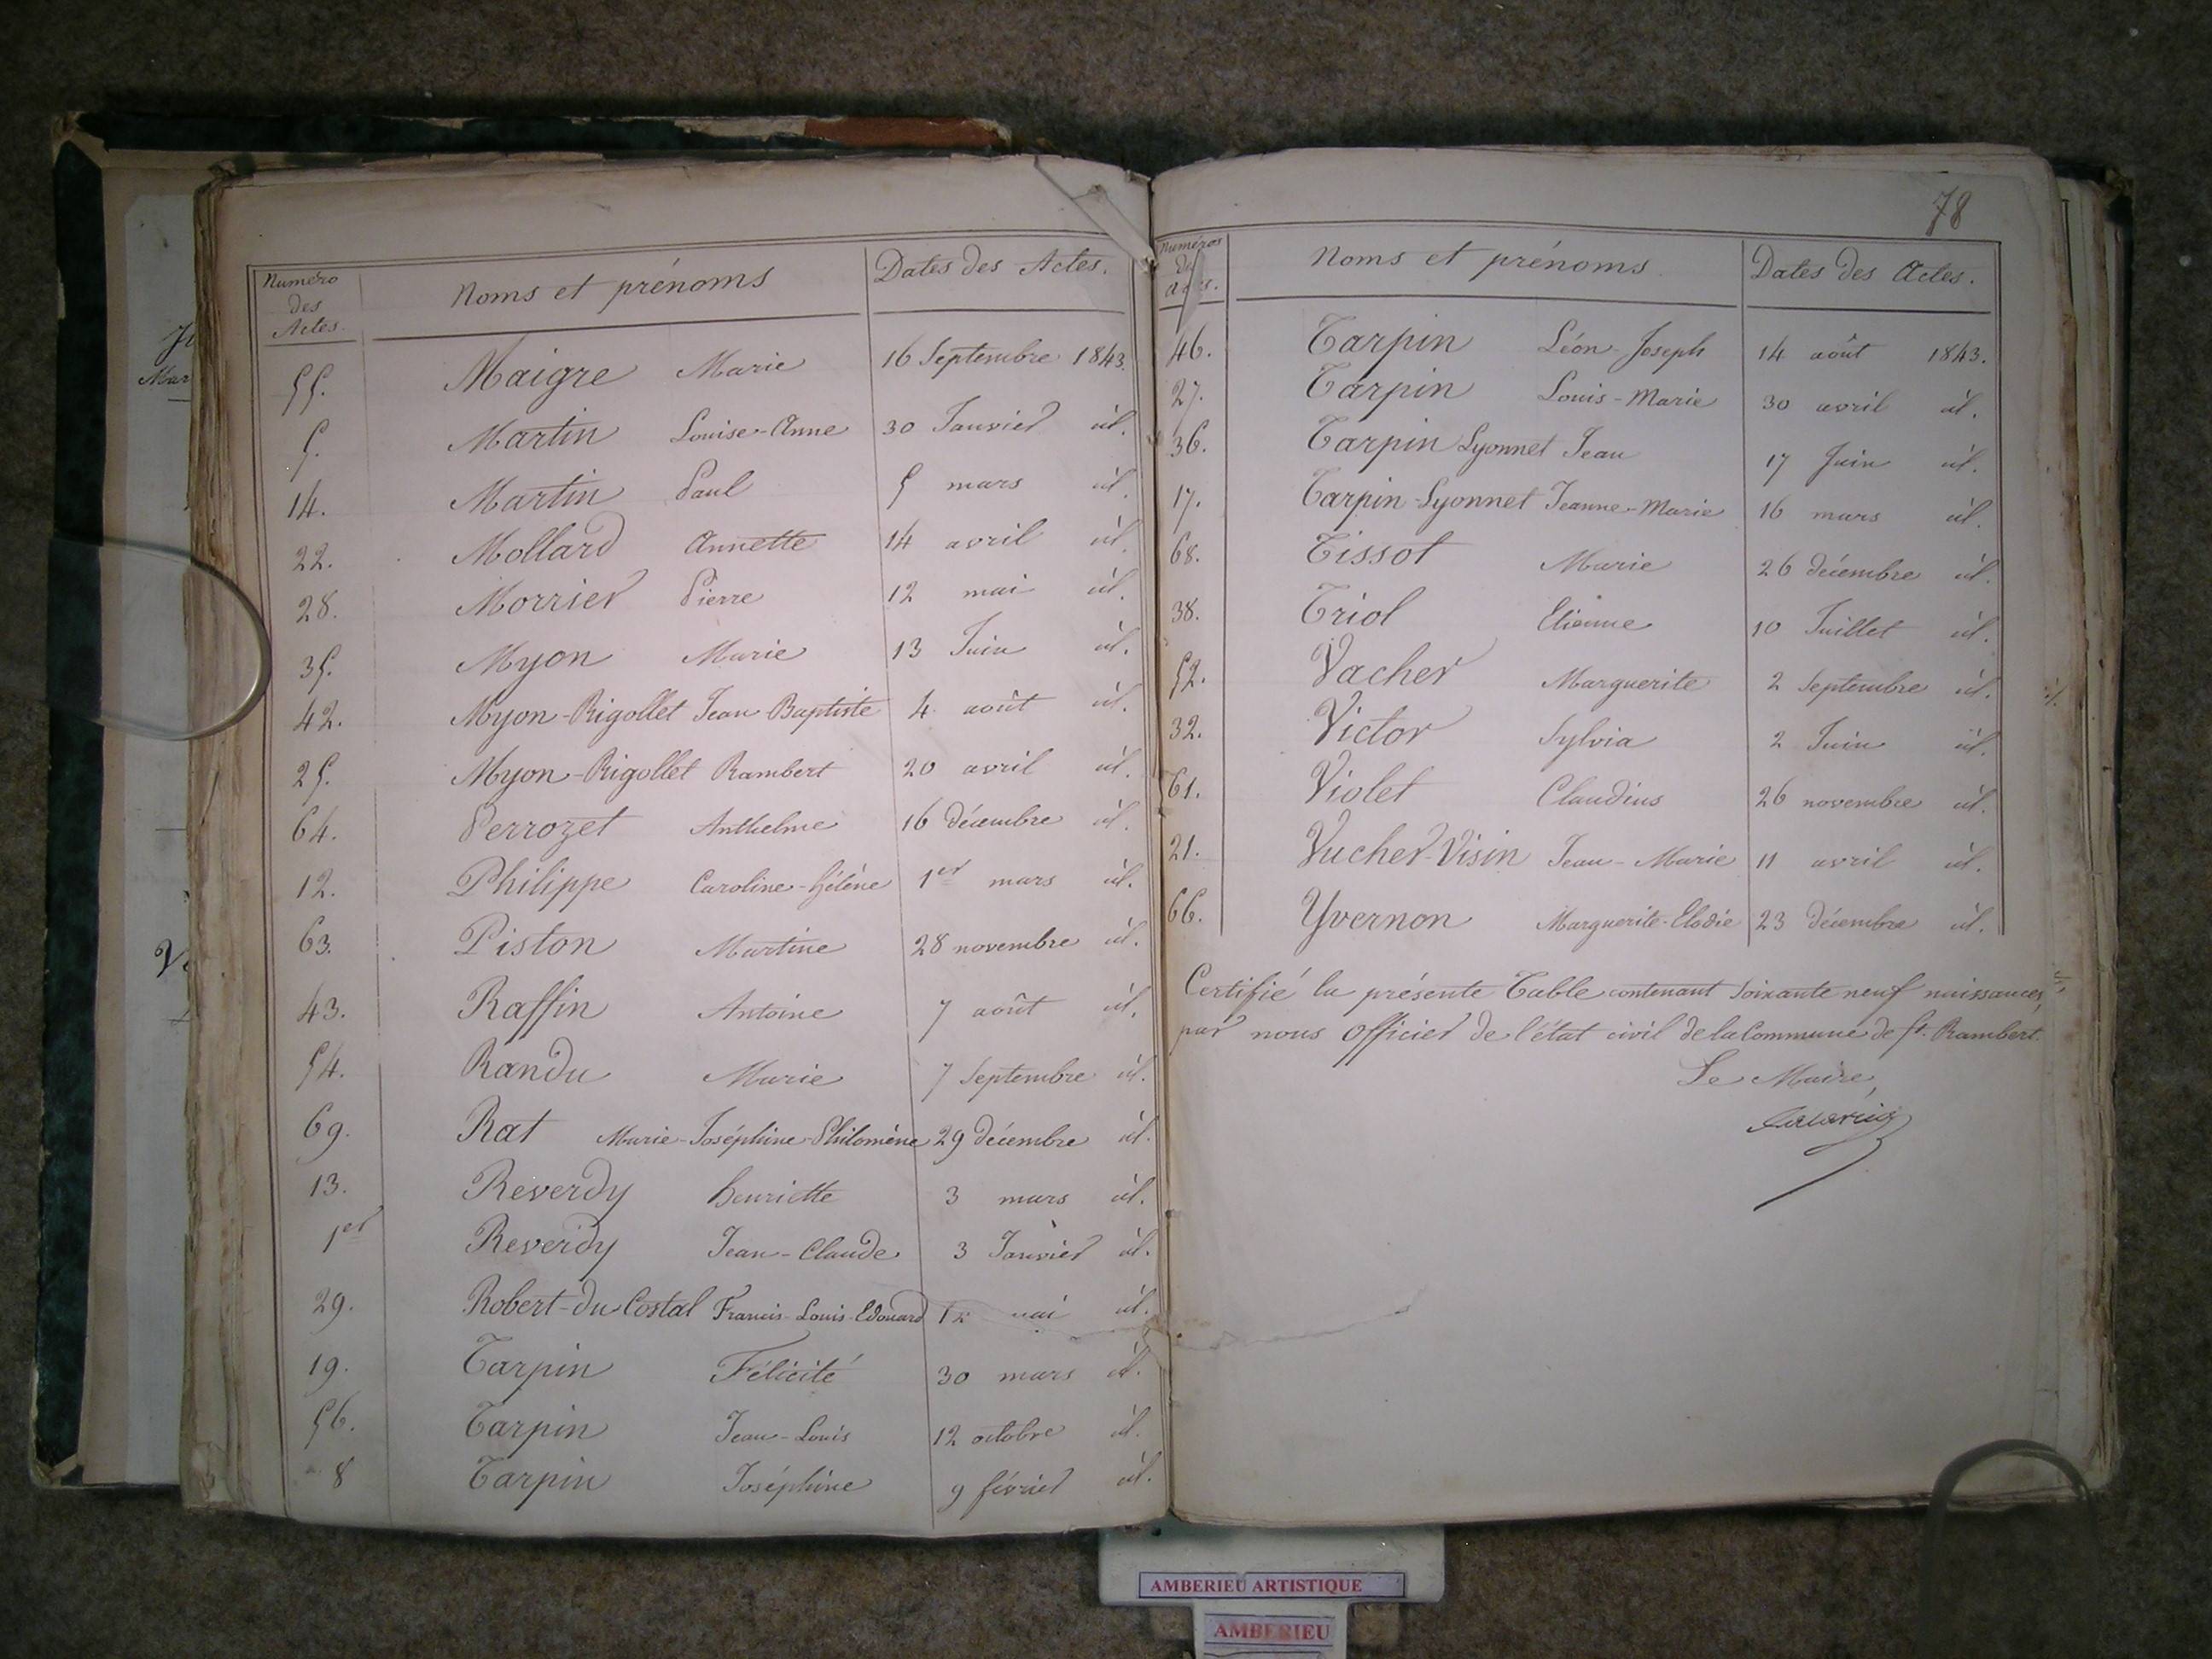 Numéro des Actes. Noms et prénoms Dates des Actes.
55. Maigre Marie 16 Septembre 1843.
5. Martin Louise-Anne 30 Janvier id.
14. Martin Paul 5 mars id.
22. Mollard Annette 14 avril id.
28. Morrier Pierre 12 mai id.
35. Myon Marie 13 Juin id.
42. Myon-Rigollet Jean Baptiste 4 août id.
25. Myon-Rigollet Rambert 20 avril id.
64. Perrozet Anthelme 16 décembre id.
12. Philippe Caroline-hélène 1er mars id.
63. Piston Martine 28 novembre id.
43. Raffin Antoine 7 août id.
54. Randu Marie 7 Septembre id.
69. Rat Marie-Joséphine-Philomène 29 décembre id.
13. Reverdy henriette 3 mars id.
1er Reverdy Jean-Claude 3 Janvier id.
29. Robert-du Costal Francis-Louis-Edouard mai id.
19. Tarpin Félicité 30 mars id.
56. Tarpin Jean-Louis 12 octobre id.
8 Tarpin Joséphine 9 février id.
78
Numéros des Actes. Noms et prénoms Dates des Actes.
46. Tarpin Léon-Joseph 14 août 1843.
27. Tarpin Louis-Marie 30 avril id.
36. Tarpin Lyonnet Jean 17 Juin id.
17. Tarpin-Lyonnet Jeanne-Marie 16 mars id.
68. Tissot Marie 26 décembre id.
38. Triol Etienne 10 Juillet id.
52. Vacher Marguerite 2 Septembre id.
32. Victor Sylvia 2 Juin id.
61. Violet Claudius 26 novembre id.
21. Vucher-Visin Jean-Marie 11 avril id.
66. Yvernon Marguerite-Elodie 23 décembre id.
Certifié la présente Table contenant Soixante neuf naissances,
par nous officier de l'état civil de la Commune de St. Rambert.
Le Maire,
AMBERIEU ARTISTIQUE
AMBERIEU